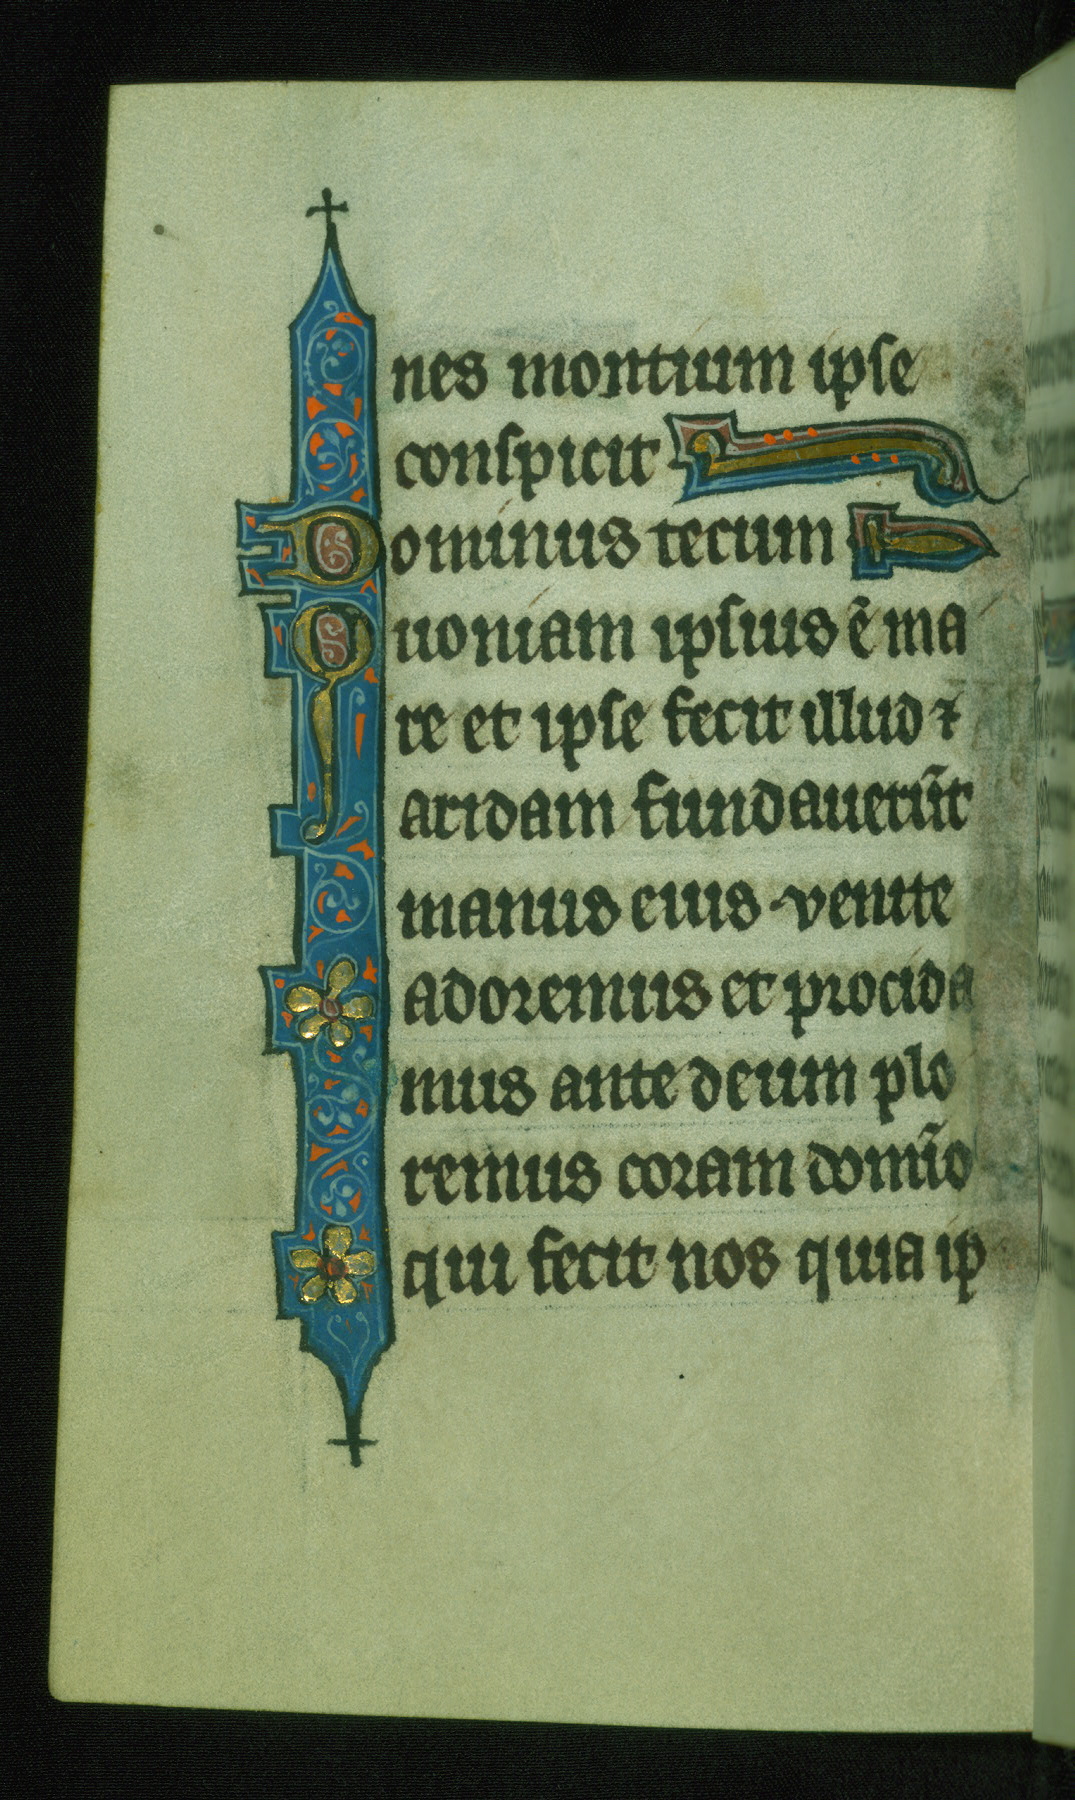 nes montium ipse
conspicit
Dominus tecum
Quoniam ipsius ē ma
re et ipse fecit illud ⁊
aridam fundauerūt
manus eius venite
adoremus et procida
mus ante deum plo
remus coram domīo
qui fecit nos quia ip